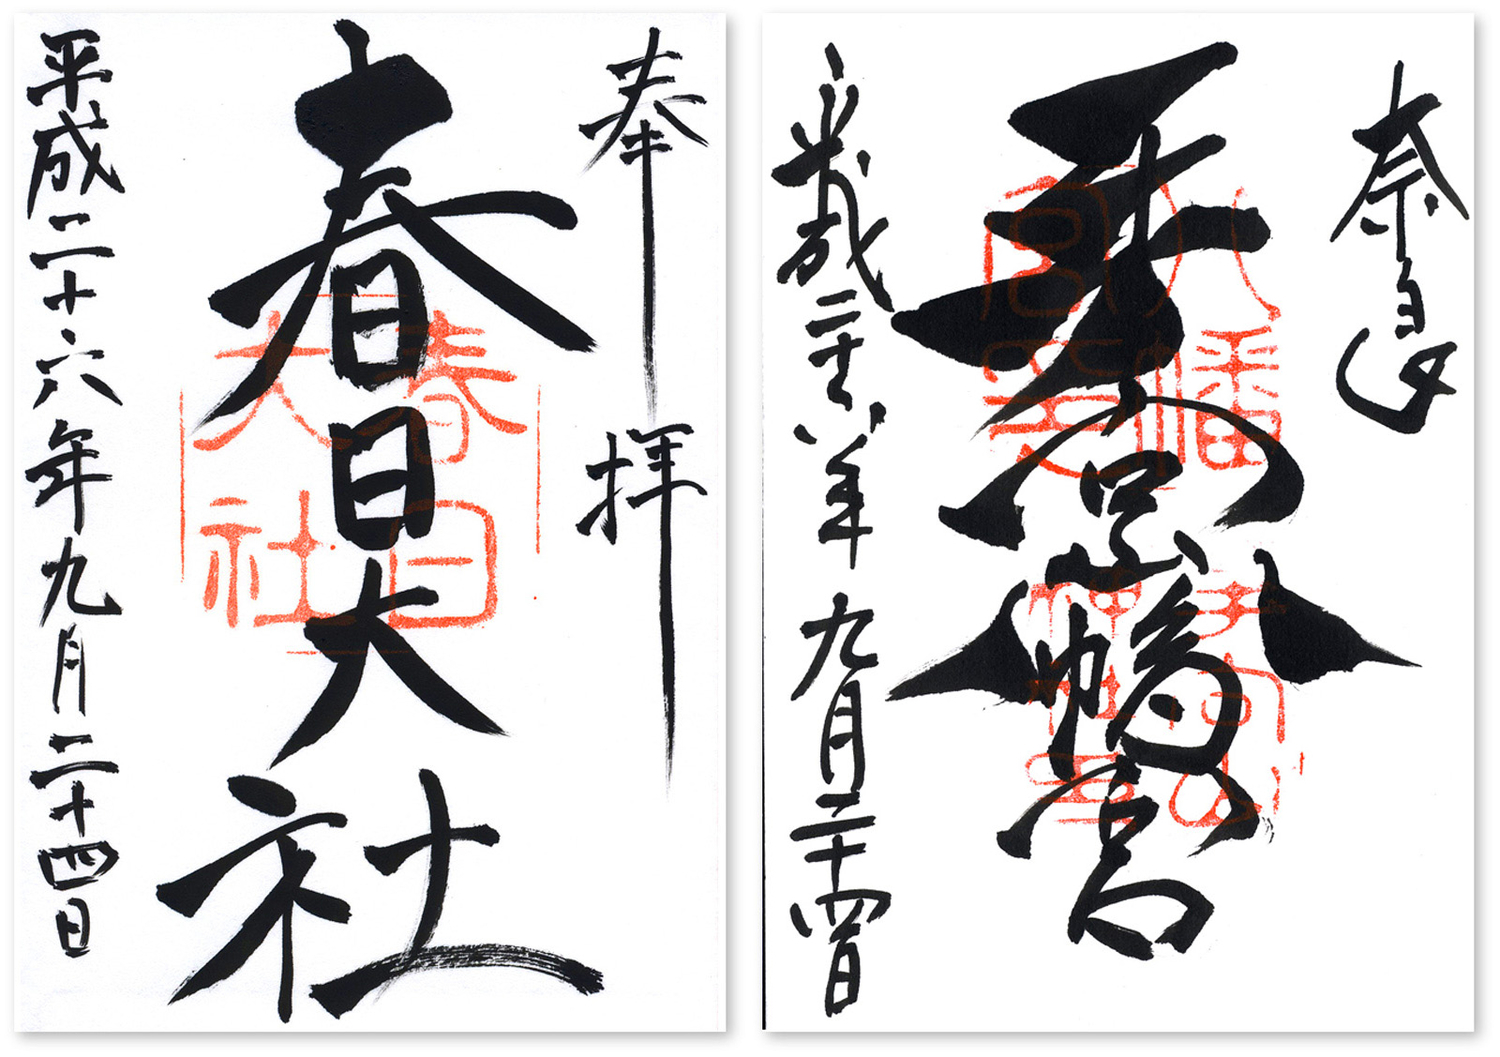 奉拝
春日大社
春日
大社
平成二十六年九月二十四日
奈良
手向山八幡宮
八幡
手向山
平成二十六年九月二十四日